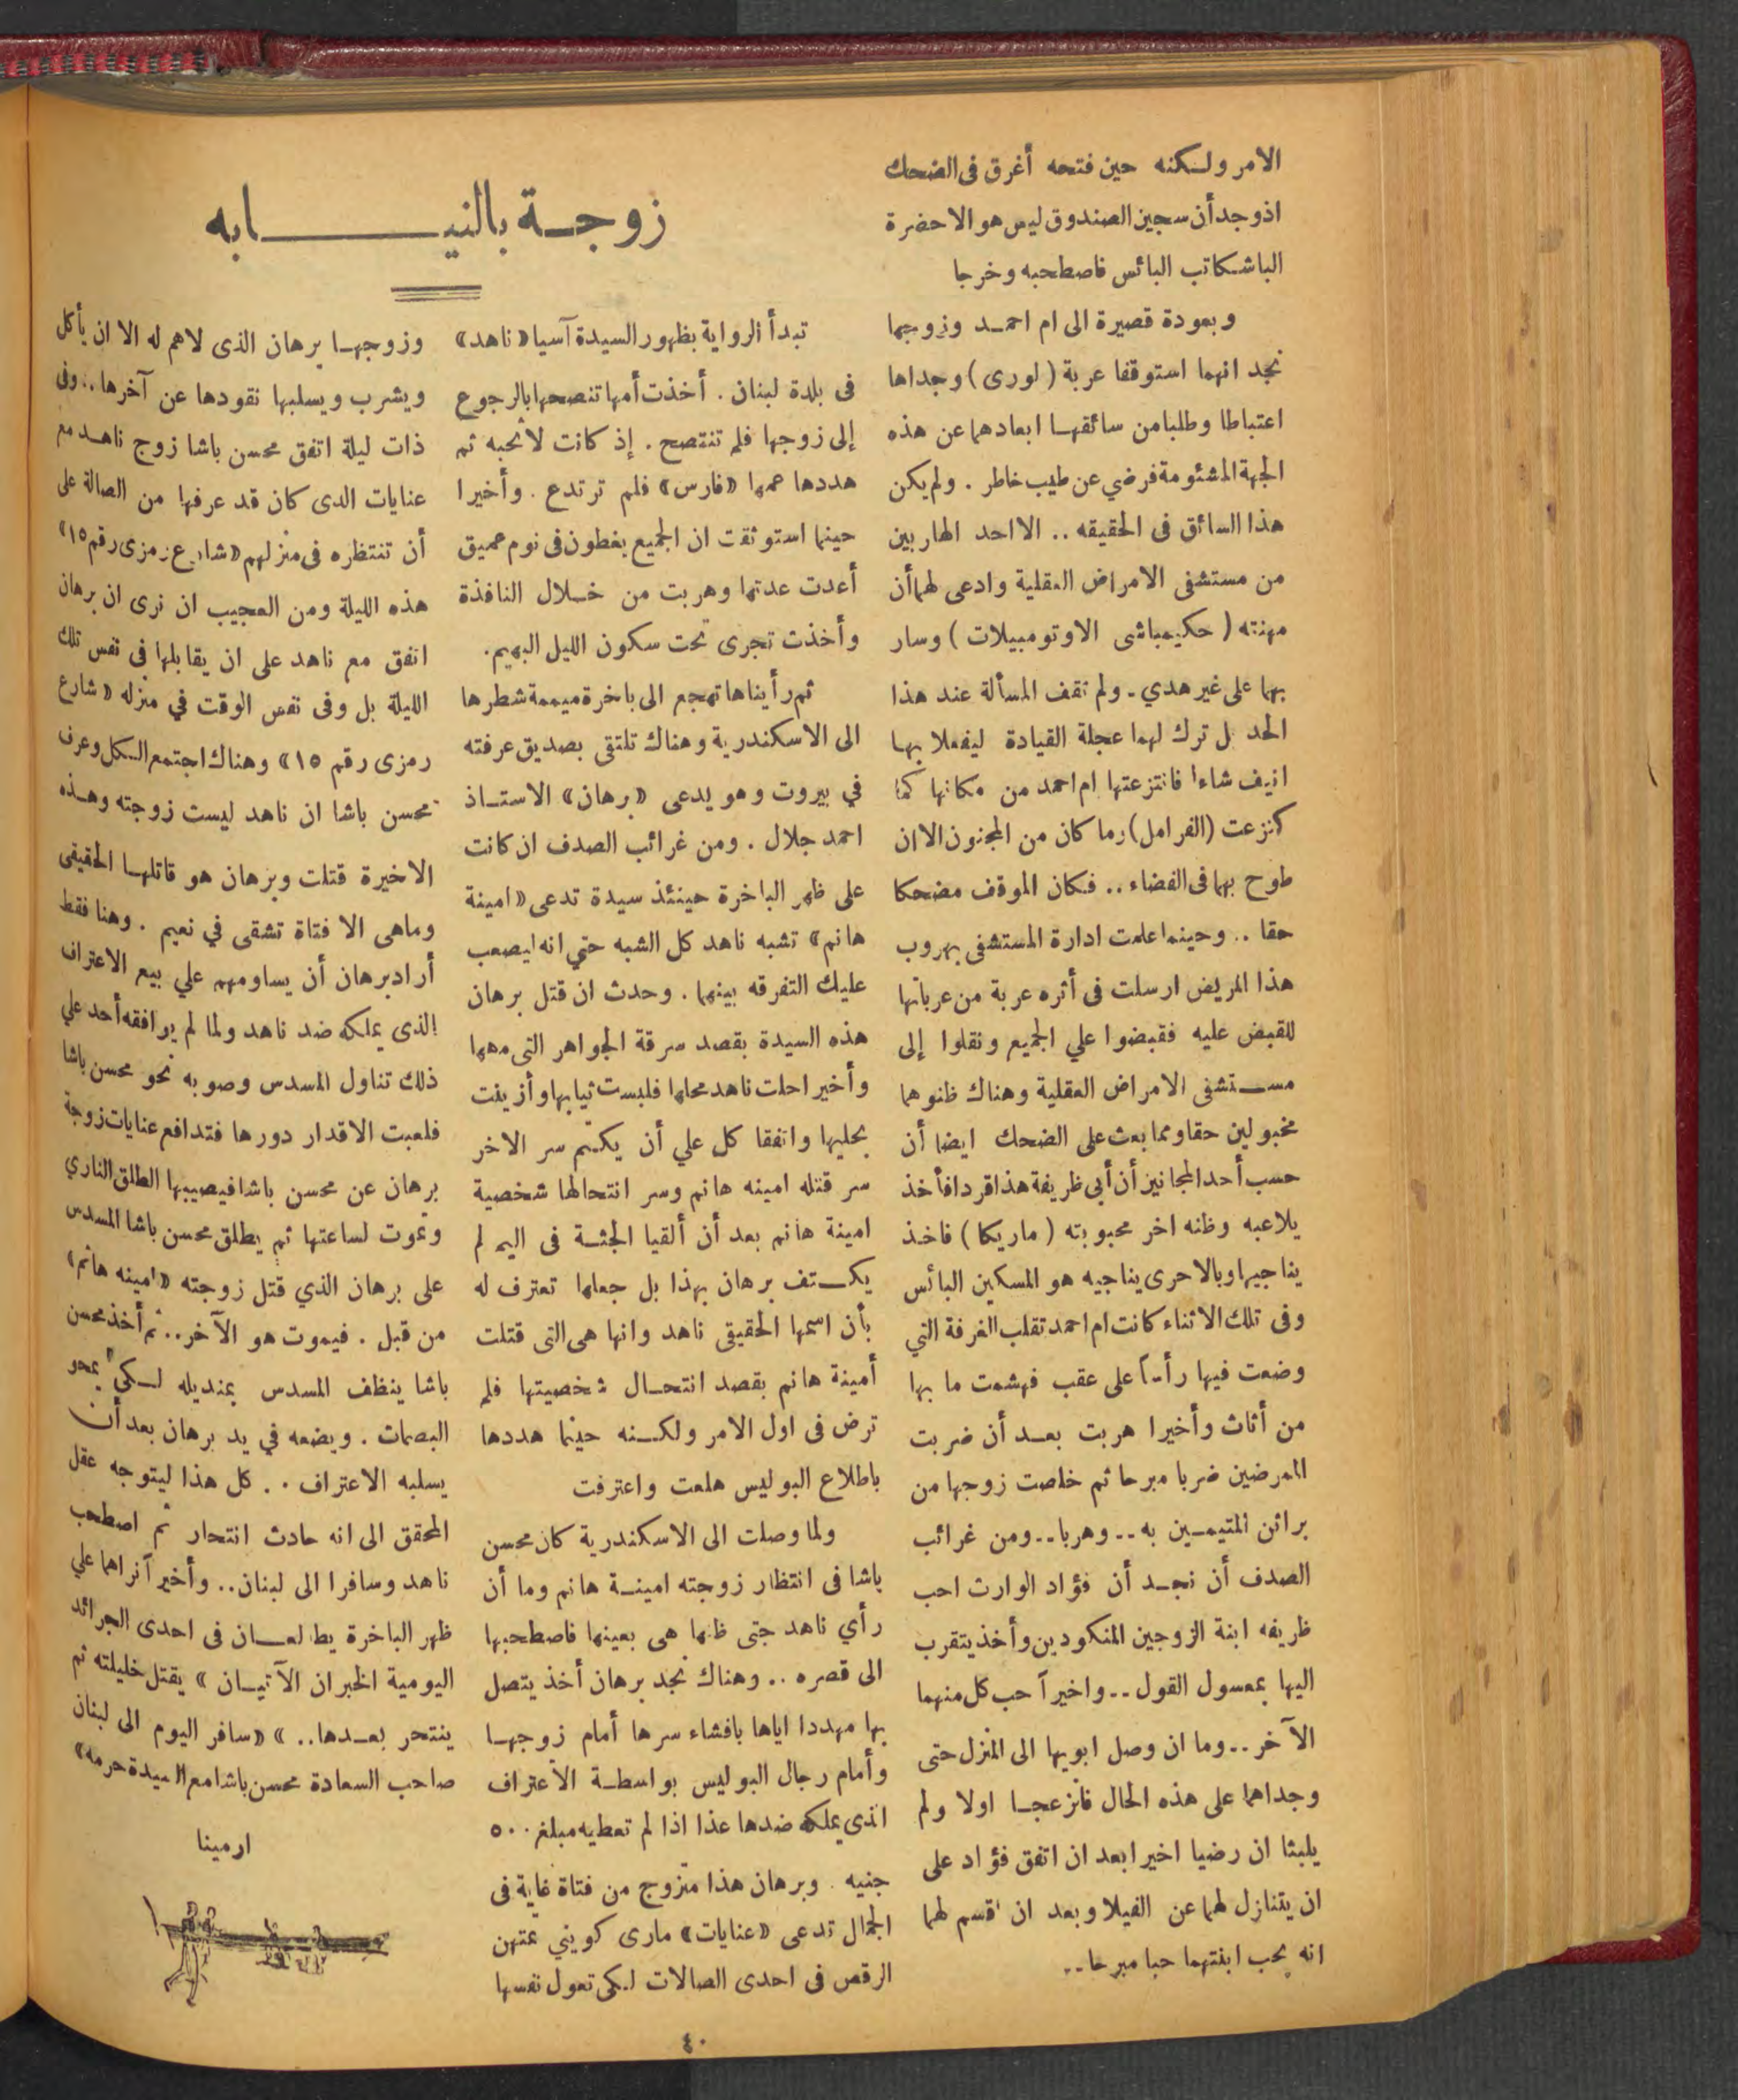 الامر ولكنه حين فتحه أغرق فى الضحك
اذ وجد أن سجين الصندوق ليس هو الا حضرة
الباشكاتب البائس فاصطحبه وخرجا
وبعودة قصيرة الى ام احمد وزوجها
نجد انهما استوقفا عربة (لورى) وجداها
اعتباطا وطلبا من سائقها ابعادهما عن هذه
الجهة المشئومة فرضي عن طيب خاطر . ولم يكن
هذا السائق فى الحقيقه .. الا احد الهاربين
من مستشفى الامراض العقلية وادعى لهما أن
مهنته ( حكيمباشى الاوتومبيلات ) وسار
بهما على غير هدي . ولم تقف المسألة عند هذا
الحد بل ترك لهما عجلة القيادة ليفعلا بها
انيف شاءا فانتزعتها ام احمد من مكانها كما
كنزعت (الفرامل) رما كان من المجنون الا ان
طوح بهما فى الفضاء .. فكان الموقف مضحكا
حقا .. وحينما علمت ادارة المستشفى بهروب
هذا المريض ارسلت فى أثره عربة من عرباتها
للقبض عليه فقبضوا علي الجميع ونقلوا إلى
مستشفى الامراض العقلية وهناك ظنوهما
مخبولين حقا ومما بعث على الضحك ايضا أن
حسب أحد المجانين أن أبى ظريفة هذا قردا فأخذ
يلاعبه وظنه اخر محبوبته ( ماريكا ) فاخذ
يناجيها وبالاحرى يناجيه هو المسكين البائس
وفى تلك الاثناء كانت ام احمد تقلب الغرفة التي
وضعت فيها رأساً على عقب فهشمت ما بها
من أثاث وأخيرا هربت بعد أن ضربت
الممرضين ضربا مبرحا ثم خلصت زوجها من
براثن المتيمين به .. وهربا .. ومن غرائب
الصدف أن نجد أن فؤاد الوارث احب
ظريفه ابنة الزوجين المنكودين وأخذ يتقرب
اليها بمعسول القول .. واخيرآ حب كل منهما
الآخر .. وما ان وصل ابويها الى المنزل حتى
وجداهما على هذه الحال فانزعجا اولا ولم
يلبثا ان رضيا اخيرا بعد ان اتفق فؤاد على
ان يتنازل لهما عن الفيلا وبعد ان اقسم لهما
انه يحب ابنتهما حبا مبرحا ..
زوجة بالنيابه
تبدأ الرواية بظهور السيدة آسيا «ناهد»
فى بلدة لبنان . أخذت أمها تنصحها بالرجوع
إلى زوجها فلم تنتصح . إذ كانت لا تحبه ثم
هددها عمها «فارس» فلم ترتدع . وأخيرا
حينما استوثقت ان الجميع يغطون فى نوم عميق
أعدت عدتها وهربت من خلال النافذة
وأخذت تجرى تحت سكون الليل البهيم .
ثم رأيناها تهجع الى باخرة ميممة شطرها
الى الاسكندرية وهناك تلتقى بصديق عرفته
في بيروت وهو يدعى «برهان» الاستاذ
احمد جلال . ومن غرائب الصدف ان كانت
على ظهر الباخرة حينئذ سيدة تدعى «امينة
هانم» تشبه ناهد كل الشبه حتي انه ليصعب
عليك التفرقه بينهما . وحدث ان قتل برهان
هذه السيدة بقصد سرقة الجواهر التى معها
وأخيرا حلت ناهد محلها فلبست ثيابها وأزينت
بحليها واتفقا كل علي أن يكتم سر الاخر
سر قتله امينه هانم وسر انتحالها شخصية
امينة هانم بعد أن ألقيا الجثة فى اليم لم
يكتف برهان بهذا بل جعلها تعترف له
بأن اسمها الحقيقى ناهد وانها هى التى قتلت
أمينة هانم بقصد انتحال شخصيتها فلم
ترض فى اول الامر ولكنه حينما هددها
باطلاع البوليس هلعت واعترفت
ولما وصلت الى الاسكندرية كان محسن
باشا فى انتظار زوجته امينة هانم وما أن
رأي ناهد حتى ظنها هى بعينها فاصطحبها
الى قصره .. وهناك نجد برهان أخذ يتصل
بها مهددا اياها بافشاء سرها أمام زوجها
وأمام رجال البوليس بواسطة الأعتراف
الذى يملكه ضدها عذا اذا لم تعطيه مبلغ ٥٠٠
جنيه . وبرهان هذا متزوج من فتاة غاية فى
الجمال تدعى «عنايات» مارى كويني تمتهن
الرقص فى احدى الصالات لكى تعول نفسها
وزوجها برهان الذى لا هم له الا ان يأكل
ويشرب ويسلبها نقودها عن آخرها .. وفى
ذات ليلة اتفق محسن باشا زوج ناهد مع
عنايات الدى كان قد عرفها من الصالة على
أن تنتظره فى منزلهم «شارع رمزى رقم ١٥»
هذه الليلة ومن العجيب ان نرى ان برهان
اتفق مع ناهد على ان يقابلها فى نفس تلك
الليلة بل وفى نفس الوقت في منزله «شارع
رمزى رقم ١٥» وهناك اجتمع الكل وعرف
محسن باشا ان ناهد ليست زوجته وهذه
الاخيرة قتلت وبرهان هو قاتلها الحقيقى
وماهى الا فتاة تشقى في نعيم . وهنا فقط
أراد برهان أن يساومهم علي بيع الاعتراف
الذى يملكه ضد ناهد ولما لم يوافقه أحد علي
ذلك تناول المسدس وصوبه نحو محسن باشا
فلعبت الاقدار دورها فتدافع عنايات زوجة
برهان عن محسن باشا فيصيبها الطلق الناري
وتموت لساعتها ثم يطلق محسن باشا المسدس
على برهان الذي قتل زوجته «امينه هانم»
من قبل . فيموت هو الآخر .. ثم أخذ محسن
باشا ينظف المسدس بمنديله لكي يمحو
البصمات . ويضعه في يد برهان بعد أن
يسلبه الاعتراف .. كل هذا ليتوجه عقل
المحقق الى انه حادث انتحار ثم اصطحب
ناهد وسافرا الى لبنان .. وأخيرآ نراهما علي
ظهر الباخرة يطالعان فى احدى الجرائد
اليومية الخبران الآتيان » يقتل خليلته ثم
ينتحر بعدها .. » «سافر اليوم الى لبنان
صاحب السعادة محسن باشا مع السيدة حرمه»
ارمينا
٤٠